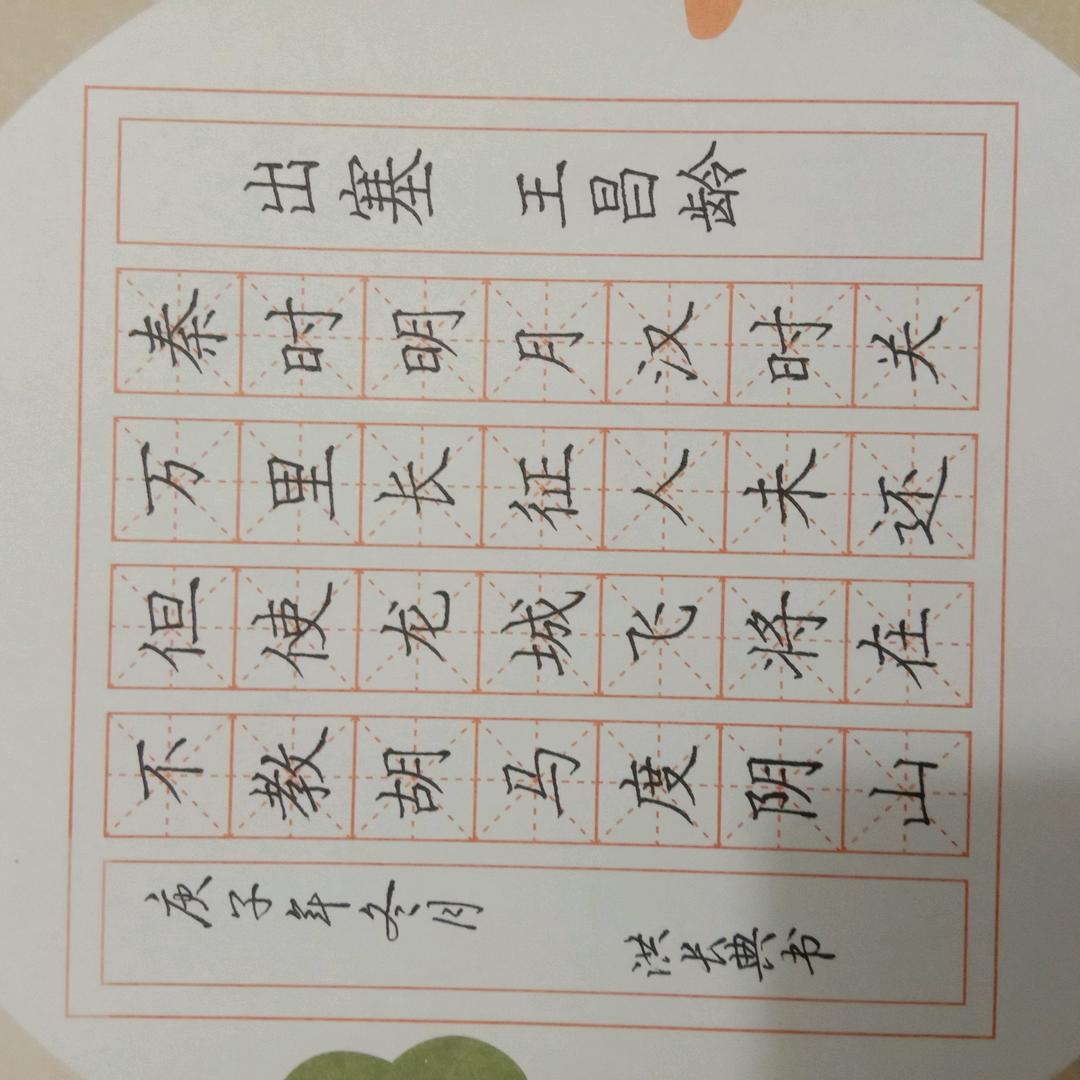 出塞 王昌龄
秦时明月汉时关
万里长征人未还
但使龙城飞将在
不教胡马度阴山
庚子年冬月
洪长典书